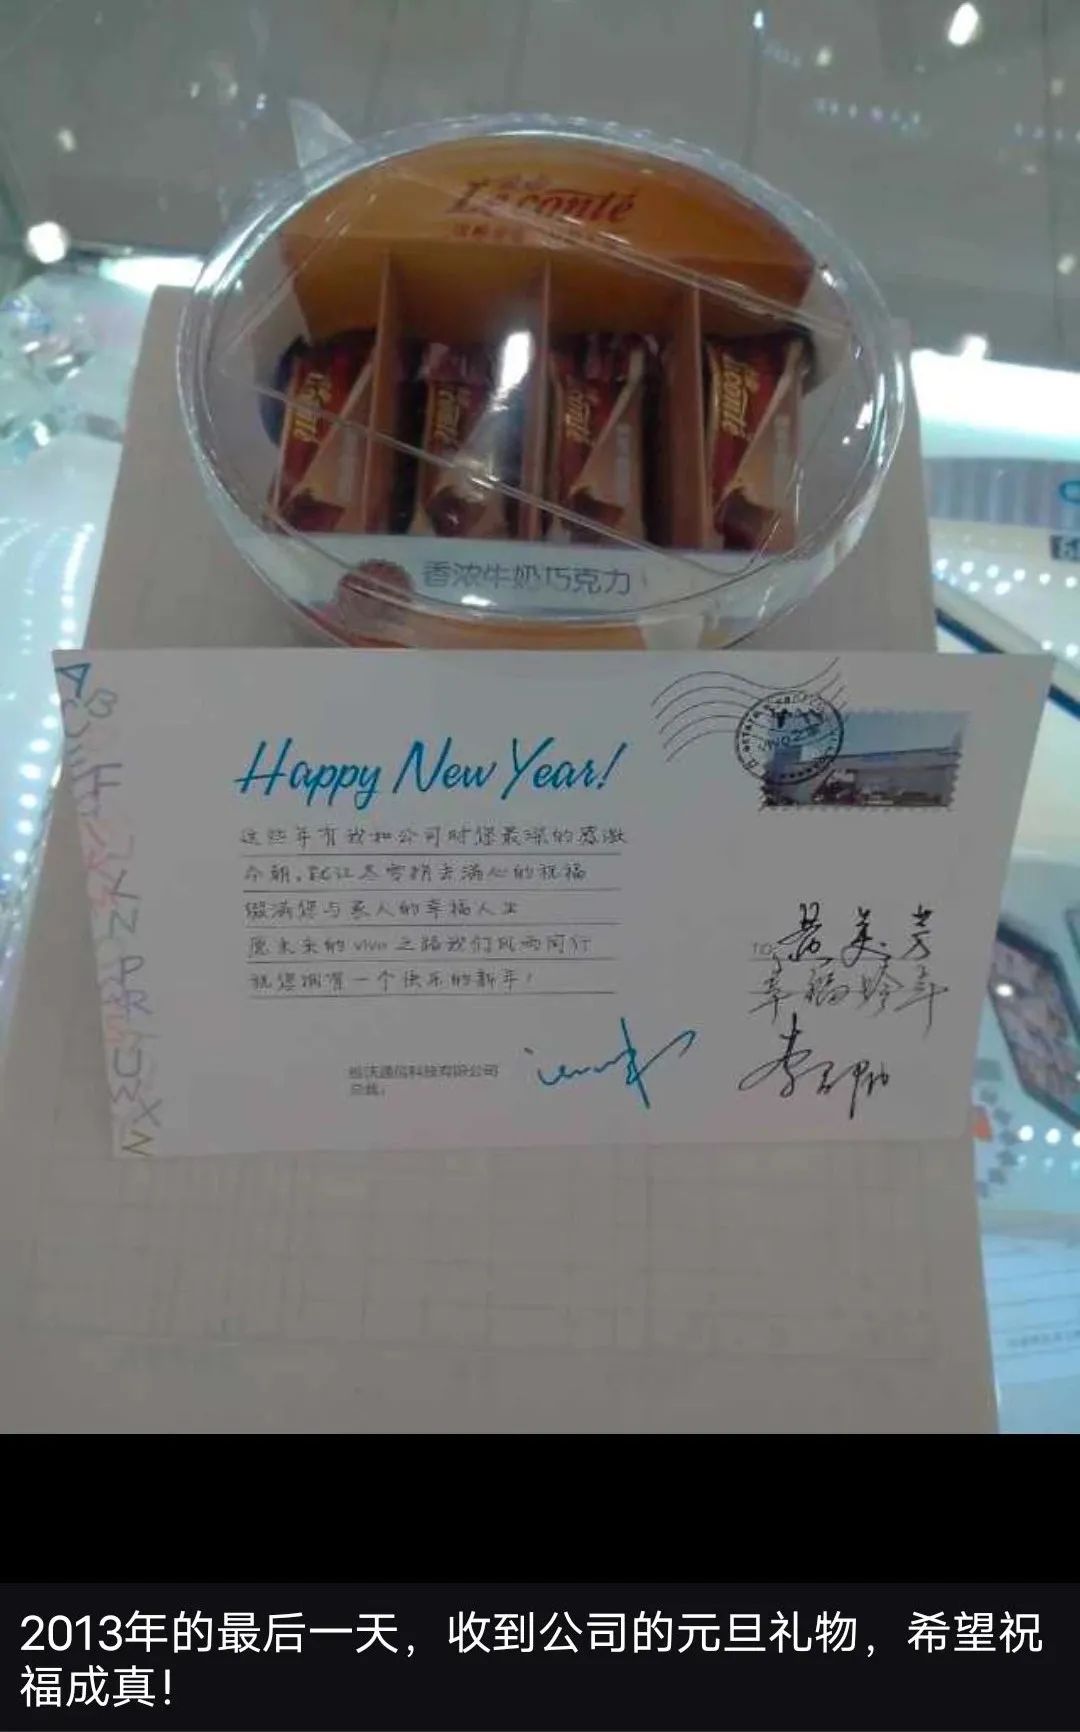 Le conté
Le conté
Le conté
Le conté
Le conté
香浓牛奶巧克力
Happy New Year!
这些年有我和公司对您最深的感激
今朝,就让冬雪捎去满心的祝福
缀满您与家人的幸福人生
愿未来的vivo之路我们风雨同行
祝您拥有一个快乐的新年!
TO:
美芳
幸福
通信科技有限公司
总裁:
2013年的最后一天，收到公司的元旦礼物，希望祝
福成真！